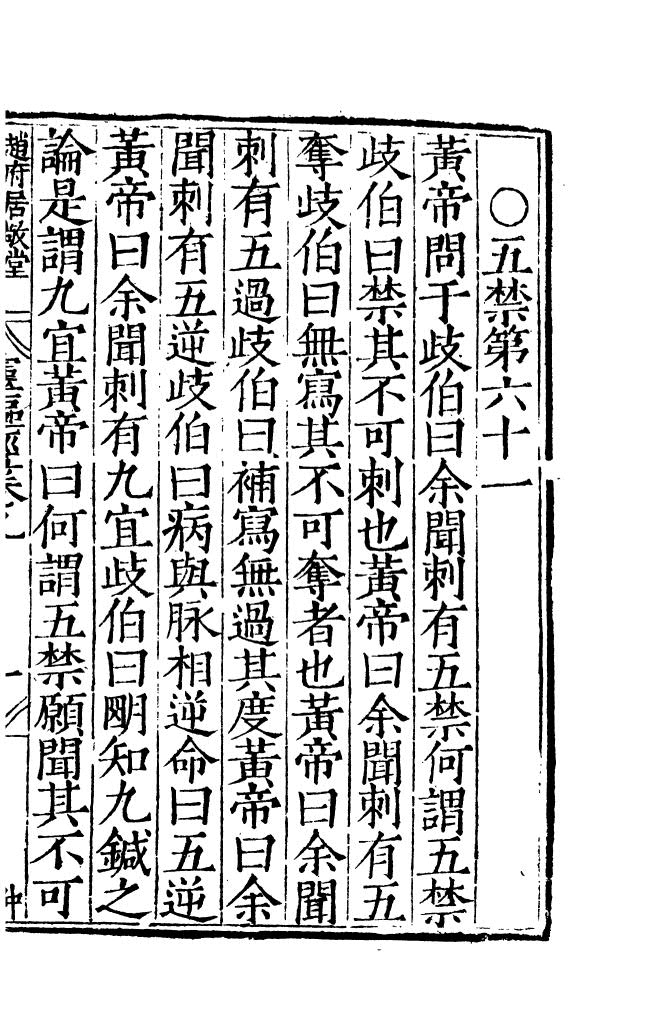 ○五禁第六十一
黃帝問于歧伯曰余聞刺有五禁何謂五禁
歧伯曰禁其不可刺也黃帝曰余聞刺有五
奪歧伯曰無寫其不可奪者也黃帝曰余聞
刺有五過歧伯曰補寫無過其度黃帝曰余
聞刺有五逆歧伯曰病與脉相逆命曰五逆
黃帝曰余聞刺有九宜歧伯曰明知九鍼之
論是謂九宜黃帝曰何謂五禁願聞其不可
趙府居敬堂